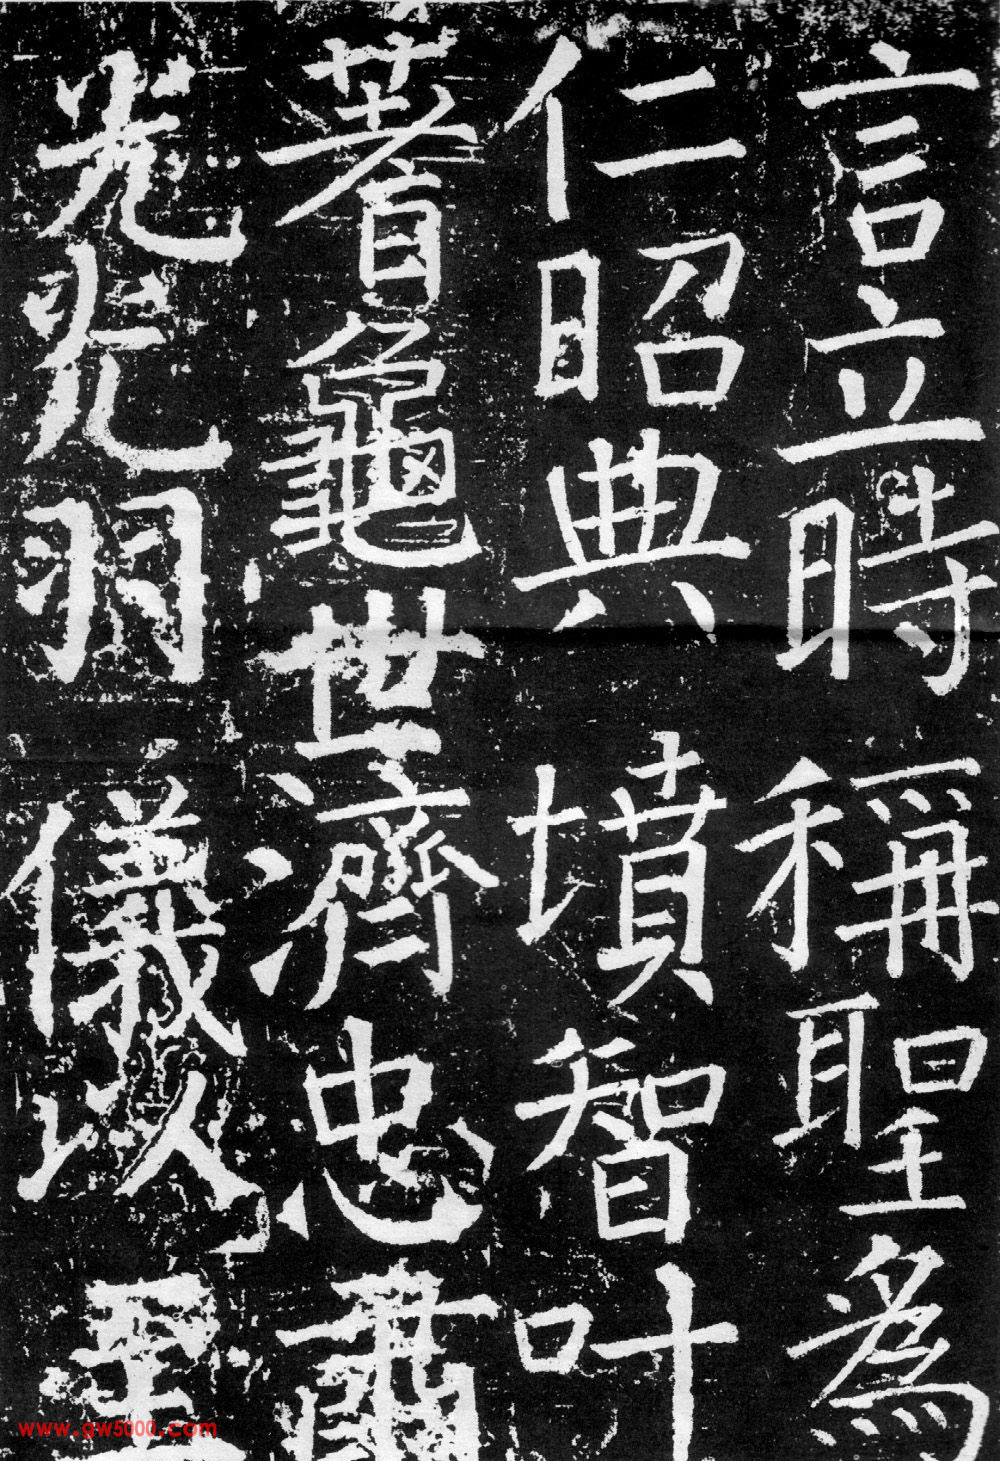 言立時稱聖為
仁昭典墳智叶
蓍龜世濟忠肅
光光羽儀以
www.gw5000.com